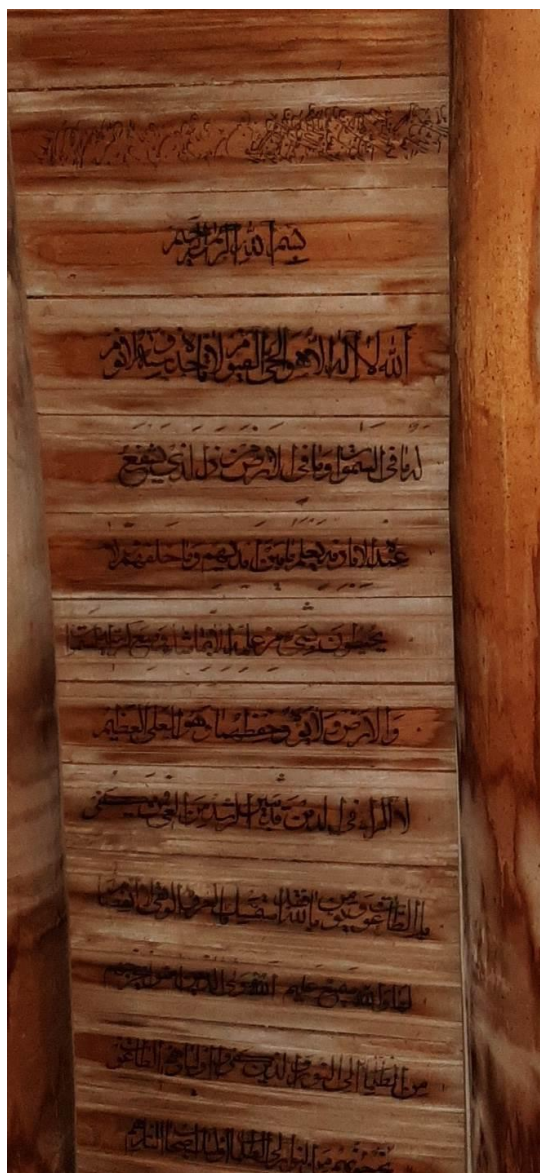 بسم الله الرحمن الرحيم
الله لا اله الا هو الحي القيوم لا تاخذه سنة ولا نوم
له ما في السموات وما في الارض من ذا الذي يشفع
عنده الا باذنه يعلم ما بين ايديهم وما خلفهم ولا
يحيطون بشيء من علمه الا بما شاء وسع كرسيه السموات
والارض ولا يؤده حفظهما وهو العلي العظيم
لا اكراه في الدين قد تبين الرشد من الغي فمن يكفر
بالطاغوت ويؤمن بالله فقد استمسك بالعروة الوثقى لا انفصام
لها والله سميع عليم الله ولي الذين امنوا يخرجهم
من الظلمات الى النور والذين كفروا اولياؤهم الطاغوت
يخرجونهم من النور الى الظلمات اولئك اصحاب النار هم